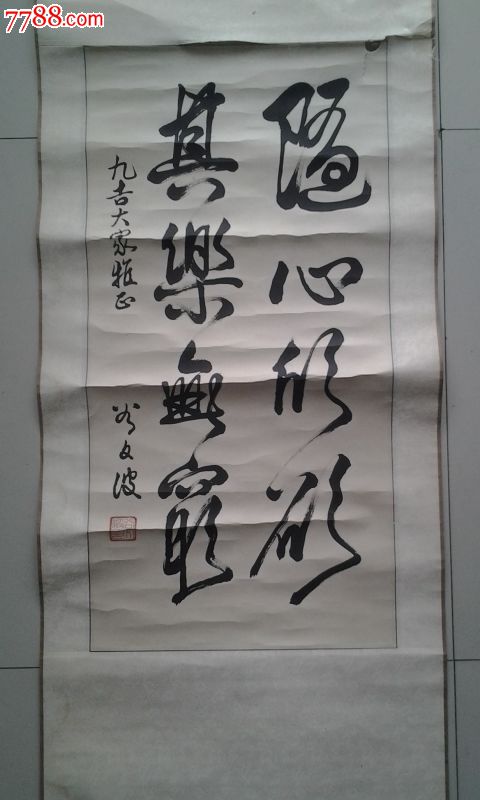 7788.com
随心所欲
其樂無窮
九吉大家雅正
文波